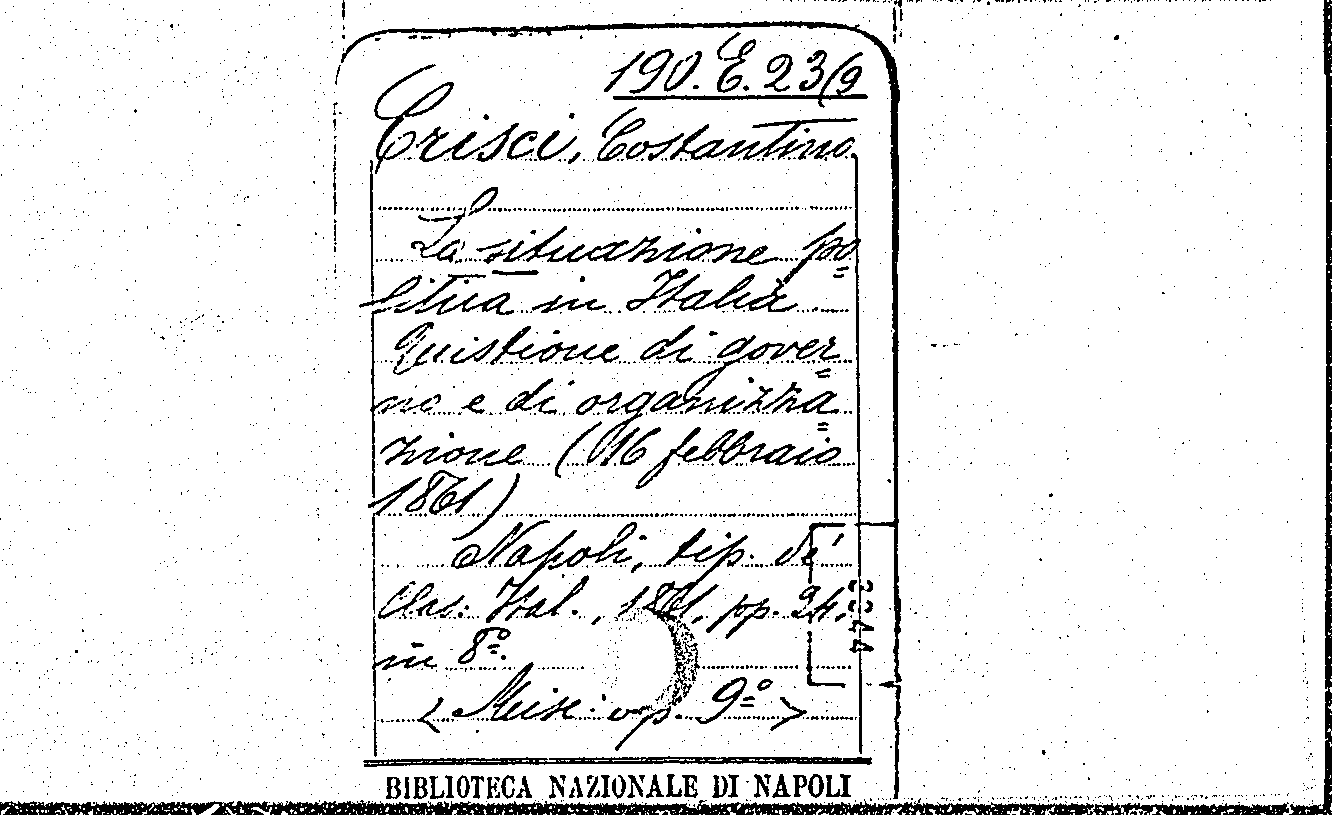 190. E. 23(9
Crisci, Costantino
La situazione po=
litica in Italia
Quistione di gover=
no e di organizza=
zione (16 febbraio
1861)
Napoli, tip. de'
Clas: Ital., 1861, pp. 24,
in 8º.
< Misc: op. 9º >
BIBLIOTECA NAZIONALE DI NAPOLI